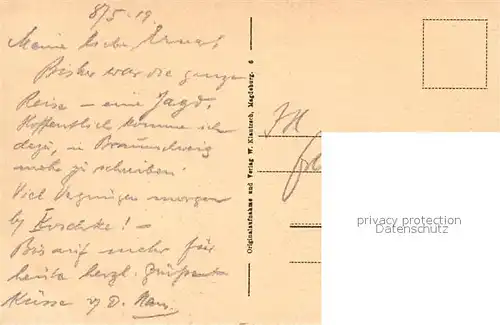 8/5.19.
Meine liebe
Bisher war die ganze
Reise – eine Jagd.
Hoffentlich komme ich
dazu, in Braunschweig
mehr zu schreiben.
Viel Vergnügen morgen
by !–
Bis auf mehr für
heute herzl.
Küsse v. D.
Originalaufnahme und Verlag W. Klautzsch, Magdeburg. 6
privacy protection
watermark